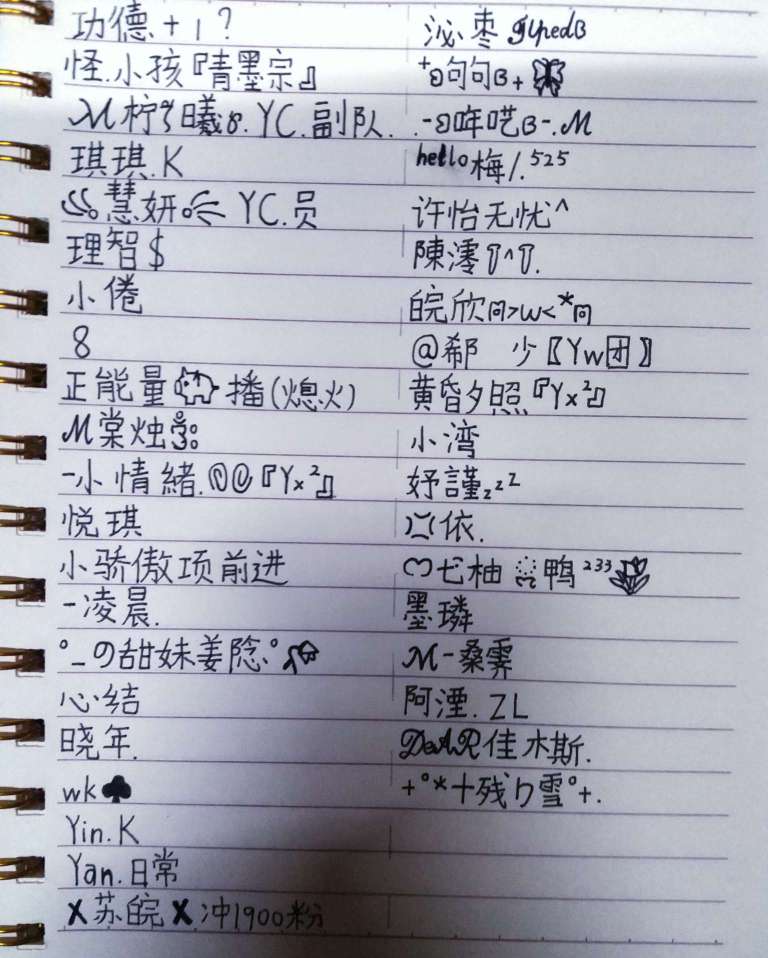 功德+1?
怪.小孩『青墨宗』
M柠 曦 . YC.副队.
琪琪.K
慧妍 YC.员
理智$
小倦
8
正能量 播(熄火)
M棠烛
-小情緒.@@『Yx²』
悦琪
小骄傲项前进
-凌晨.
°_の甜妹姜隐.°
心结
晓年.
wk♣
Yin.K
Yan.日常
X苏皖X.冲1900粉
泌枣
句句 +
-哞呓 -.M
hello梅/.⁵²⁵
许怡无忧^
陳澪 ^ .
皖欣 >w<*
@郗 少〖Yw团〗
黄昏夕照『Yx²』
小湾
妤謹zᶻᶻ
依.
七柚 鸭²³³
墨璘
M-桑霁
阿湮.ZL
DeAR佳木斯.
+°*十残り雪°+.